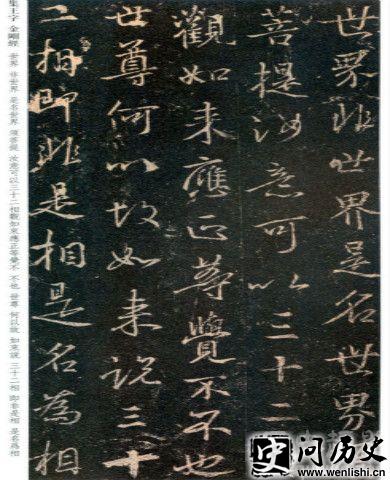 世界非世界是名世界
菩提汝意可以三十二
觀如来應正等覺不不也
世尊何以故如来説三十
二相即非是相是名為相
集王字 金剛經 世界 非世界 是名世界 須菩提 汝意可以三十二相觀如來應正等覺不 不也 世尊 何以故 如來說 三十二相 即非是相 是名爲相
史问历史
www.wenlishi.cn